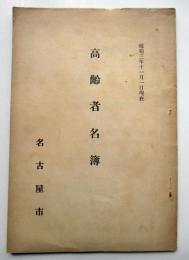 昭和三年十一月一日現在
高齢者名簿
名古屋市